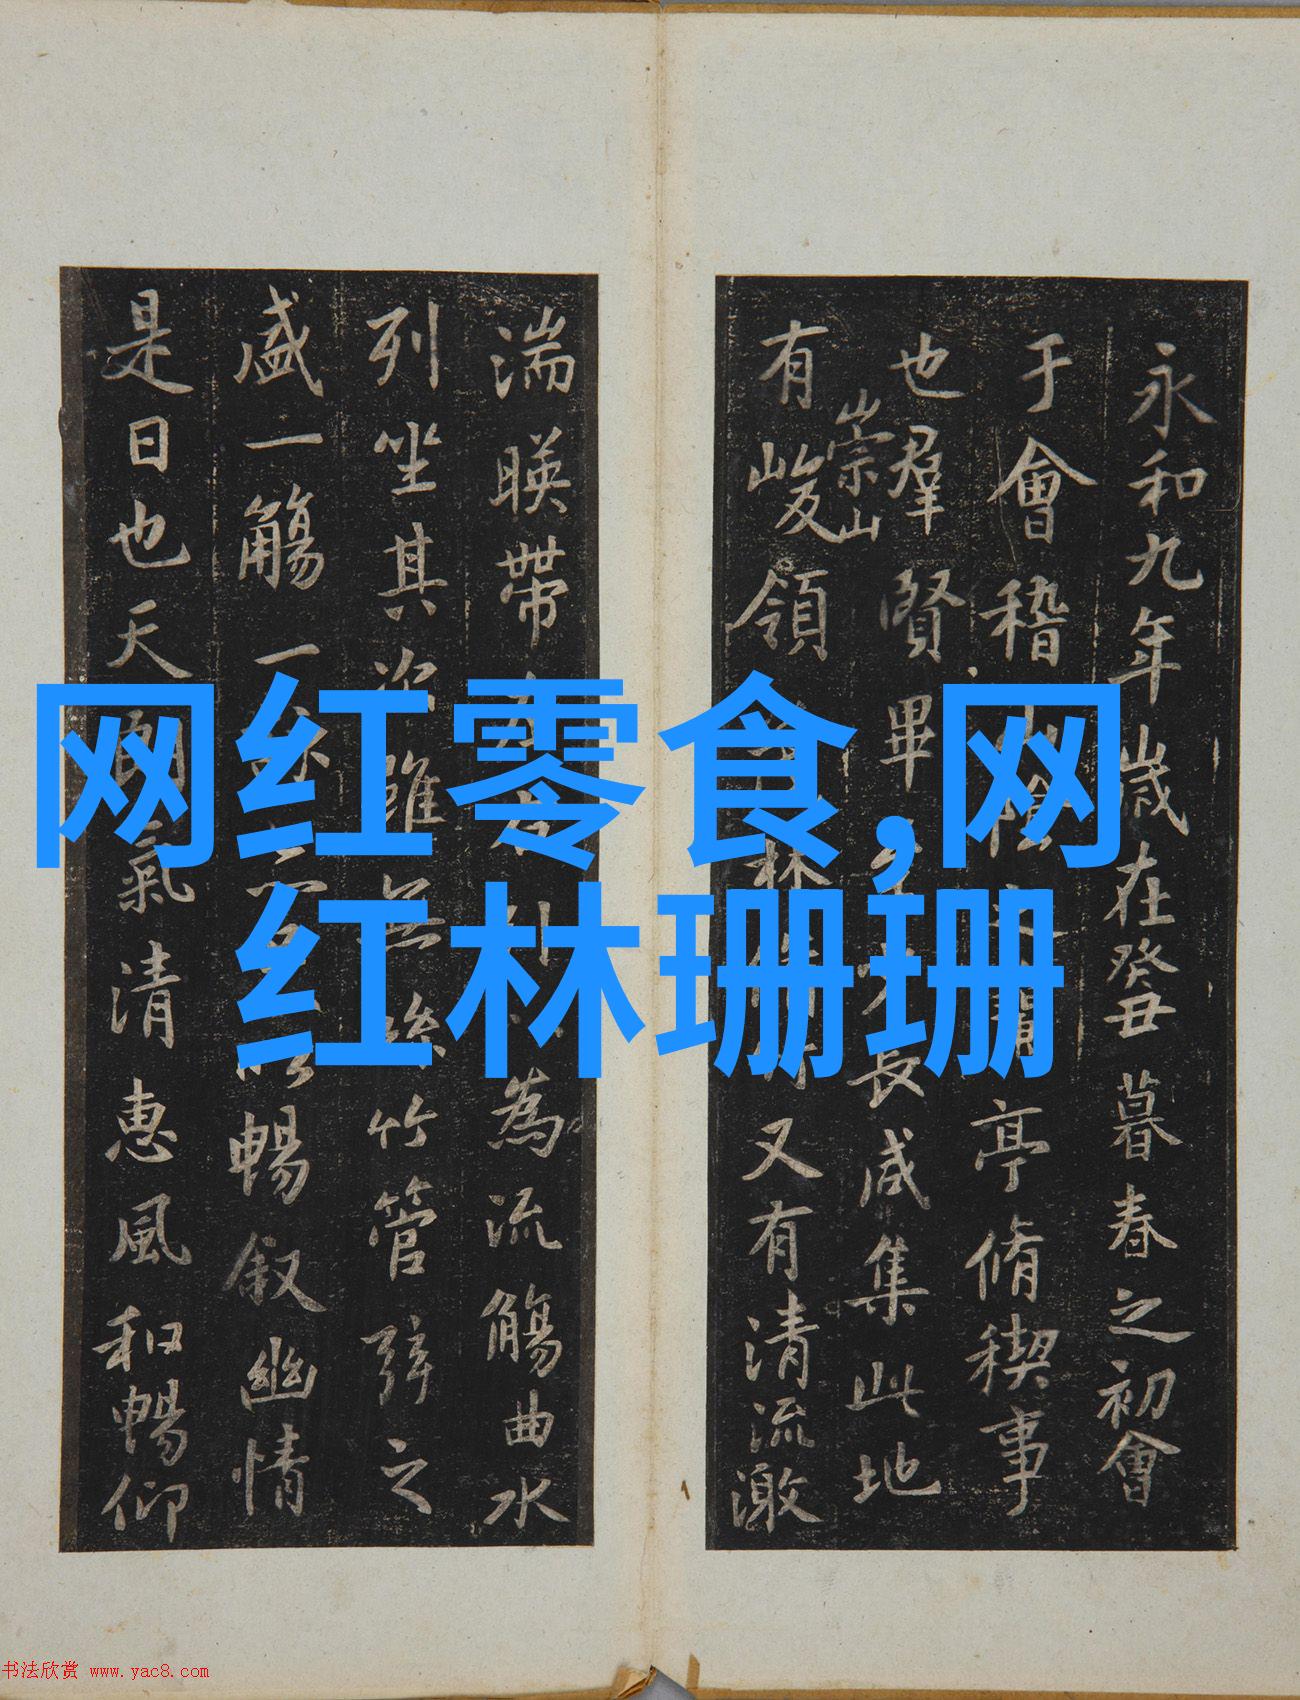 永和九年歲在癸丑暮春之初會
于會稽山陰之蘭亭脩稧事
也羣賢畢至少長咸集此地
崇山
有峻領茂林脩竹又有清流激
湍暎帶左右引以為流觴曲水
列坐其次雖無絲竹管弦之
盛一觴一詠亦足以暢叙幽情
是日也天朗氣清惠風和暢仰
网红零食,网
红林珊珊
书法欣赏 www.yac8.com